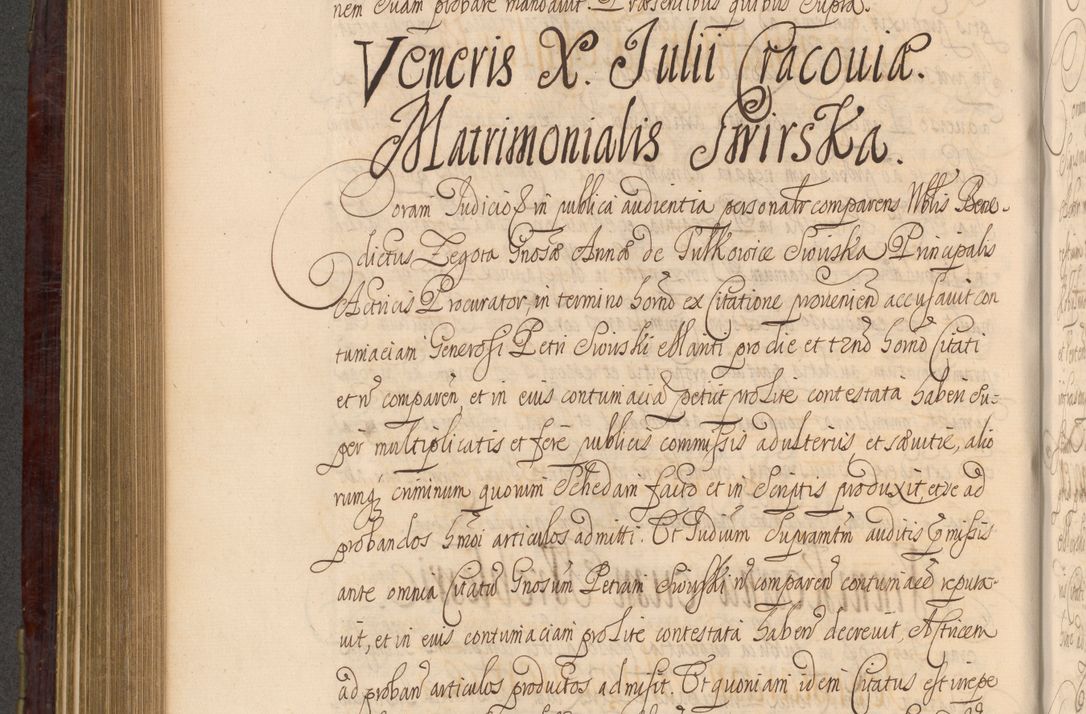 nem suam probare mandavit. Præsentibus quibus supra.
Veneris X. Iulii Cracouiæ.
Matrimonialis Swirska.
Coram Iudicio & in publica audientia personalr comparens Nblis Bene-
dictus Zegota Gnosæ Annæ de Tulkowice Swirska Principalis
Actricis Procurator, in termino hodno ex Citatione proveniend accusavit con
tumaciam Generosi Petri Swirski Mariti pro die et t2nd hodno Citati
et n comparen et in eius contumacia petiit pro lite contestata haberi su=
per multiplicatis et fere publicis commissis adulteriis et sævitie, alio
rumq criminum quorum Schedam facto et in Scriptis produxit, et se ad
probandos hmoi articulos admitti. Et Iudium Supramtm auditis præmissis
ante omnia Citatu Gnosum Petrum Swirski n comparen contumace reputa-
vit, et in eius contumaciam pro lite contestata haben decrevit, Actricem
ad proban articulos productos admisit. Et quoniam idem Citatus est inrepe